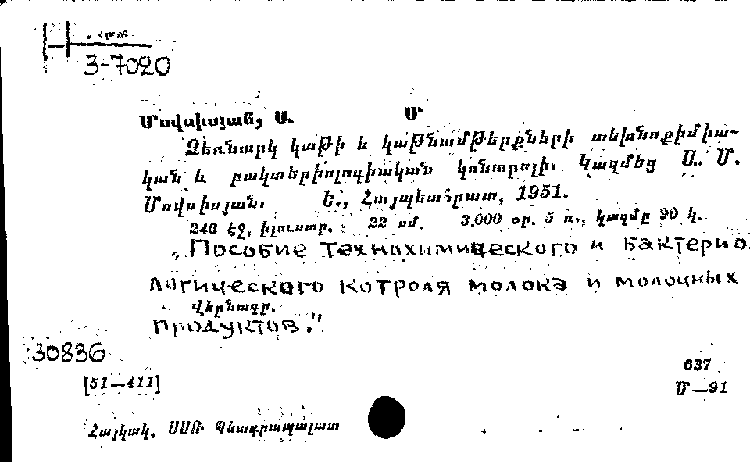 3-7020
Մովսիսյան, Ս. Մ
Ձեռնարկ կաթի և կաթնամթերքների տեխնոքիմիա-
կան և բակտերիոլոգիական կոնտրոլի։ Կազմեց Ս. Մ.
Մովսիսյան. Ե., Հայպետհրատ, 1951.
248 էջ, իլուստր. 22 սմ. 3.000 օր. 5 ռ., կազմը 90 կ.
„Пособие технохимического и бактерио
логического котроля молока и молочных
Վերնագր.
продуктов."
30836
[51—411]
637
Մ—91
Հայկակ. ՍՍՌ Պետգրապալատ